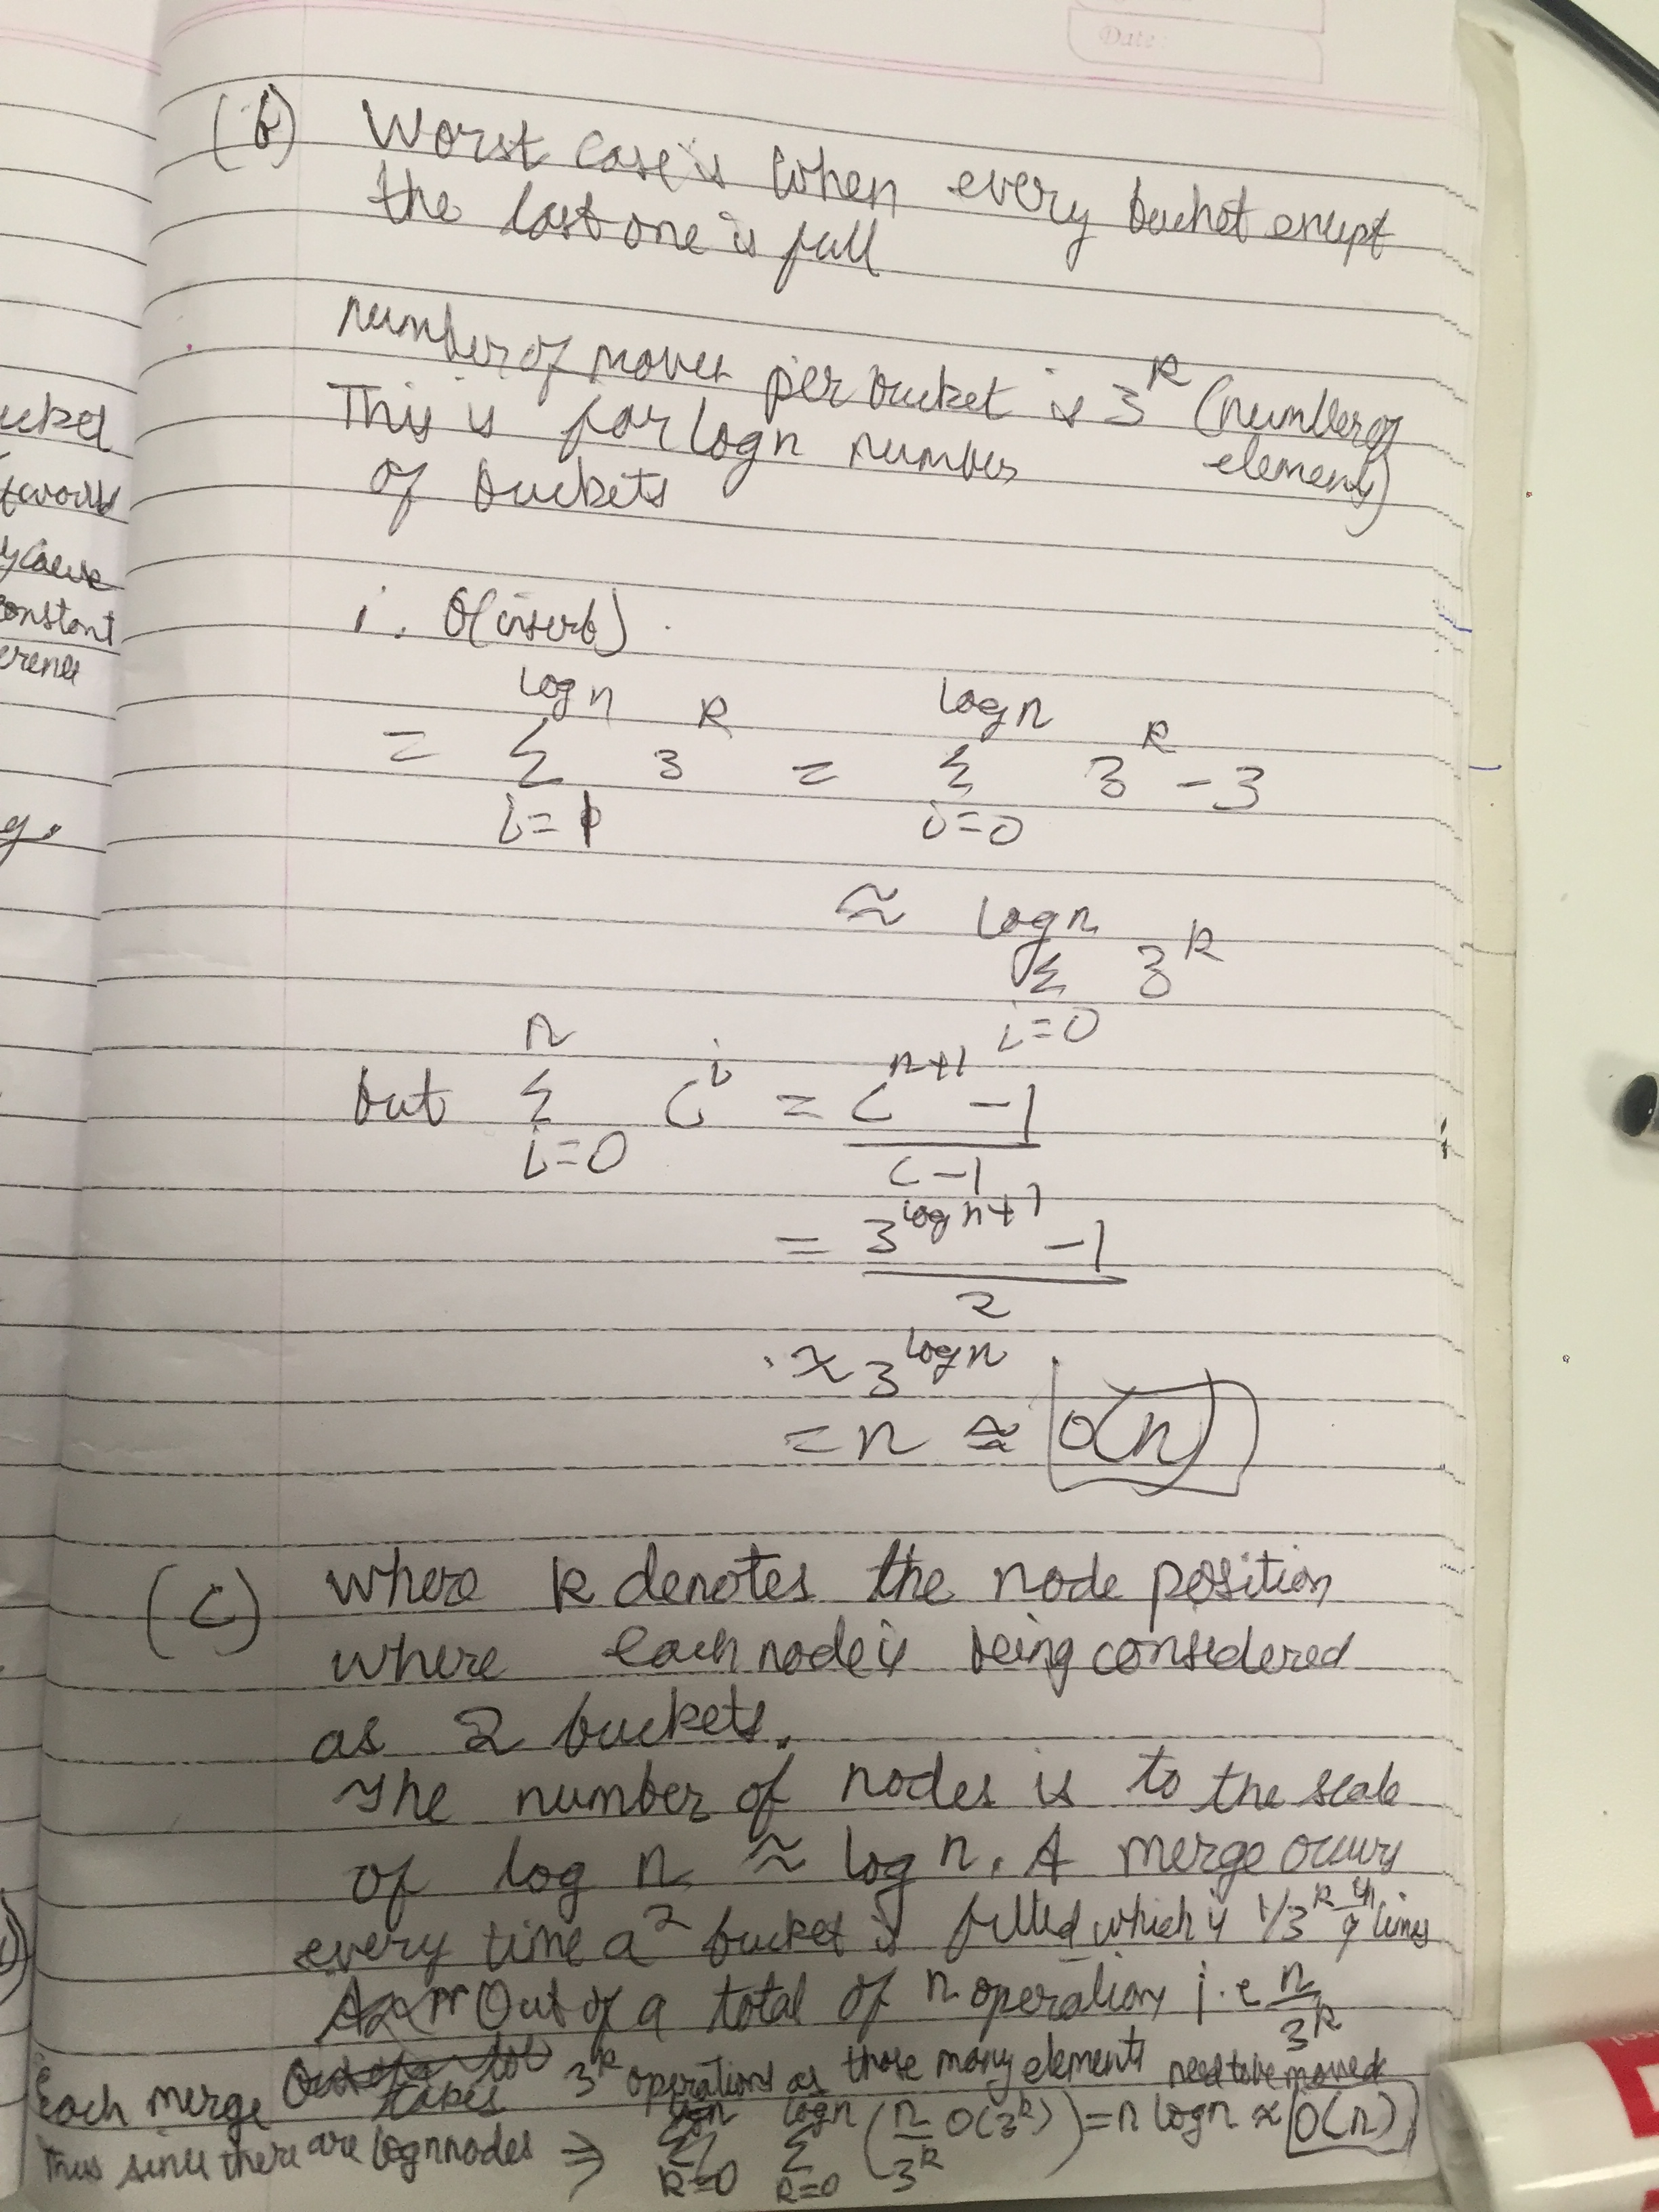 Date:
(b) Worst case is when every bucket except
the last one is full
number of moves per bucket is 3^k (number of
elements)
This is for log n number
of buckets
i. O(insert).
= log n Σ i=1 3^k = log n Σ i=0 3^k - 3
≈ log n Σ i=0 3^k
but n Σ i=0 c^i = c^(n+1) - 1 / c-1
= 3^(log n+1) - 1 / 2
≈ 3^(log n)
= n ≅ O(n)
(c) where k denotes the node position
where each node is being considered
as 2 buckets.
The number of nodes is to the scale
of log n ≈ log n. A merge occurs
every time a 2 bucket is filled which is 1/3^k th of times
Out of a total of n operations i.e n/3^k
Each merge takes 3^k operations as those many elements need to be moved
Thus since there are log n nodes ⇒ log n Σ k=0 log n Σ k=0 (n/3^k O(3^k)) = n log n ≈ O(n)
ucket
cause
constant